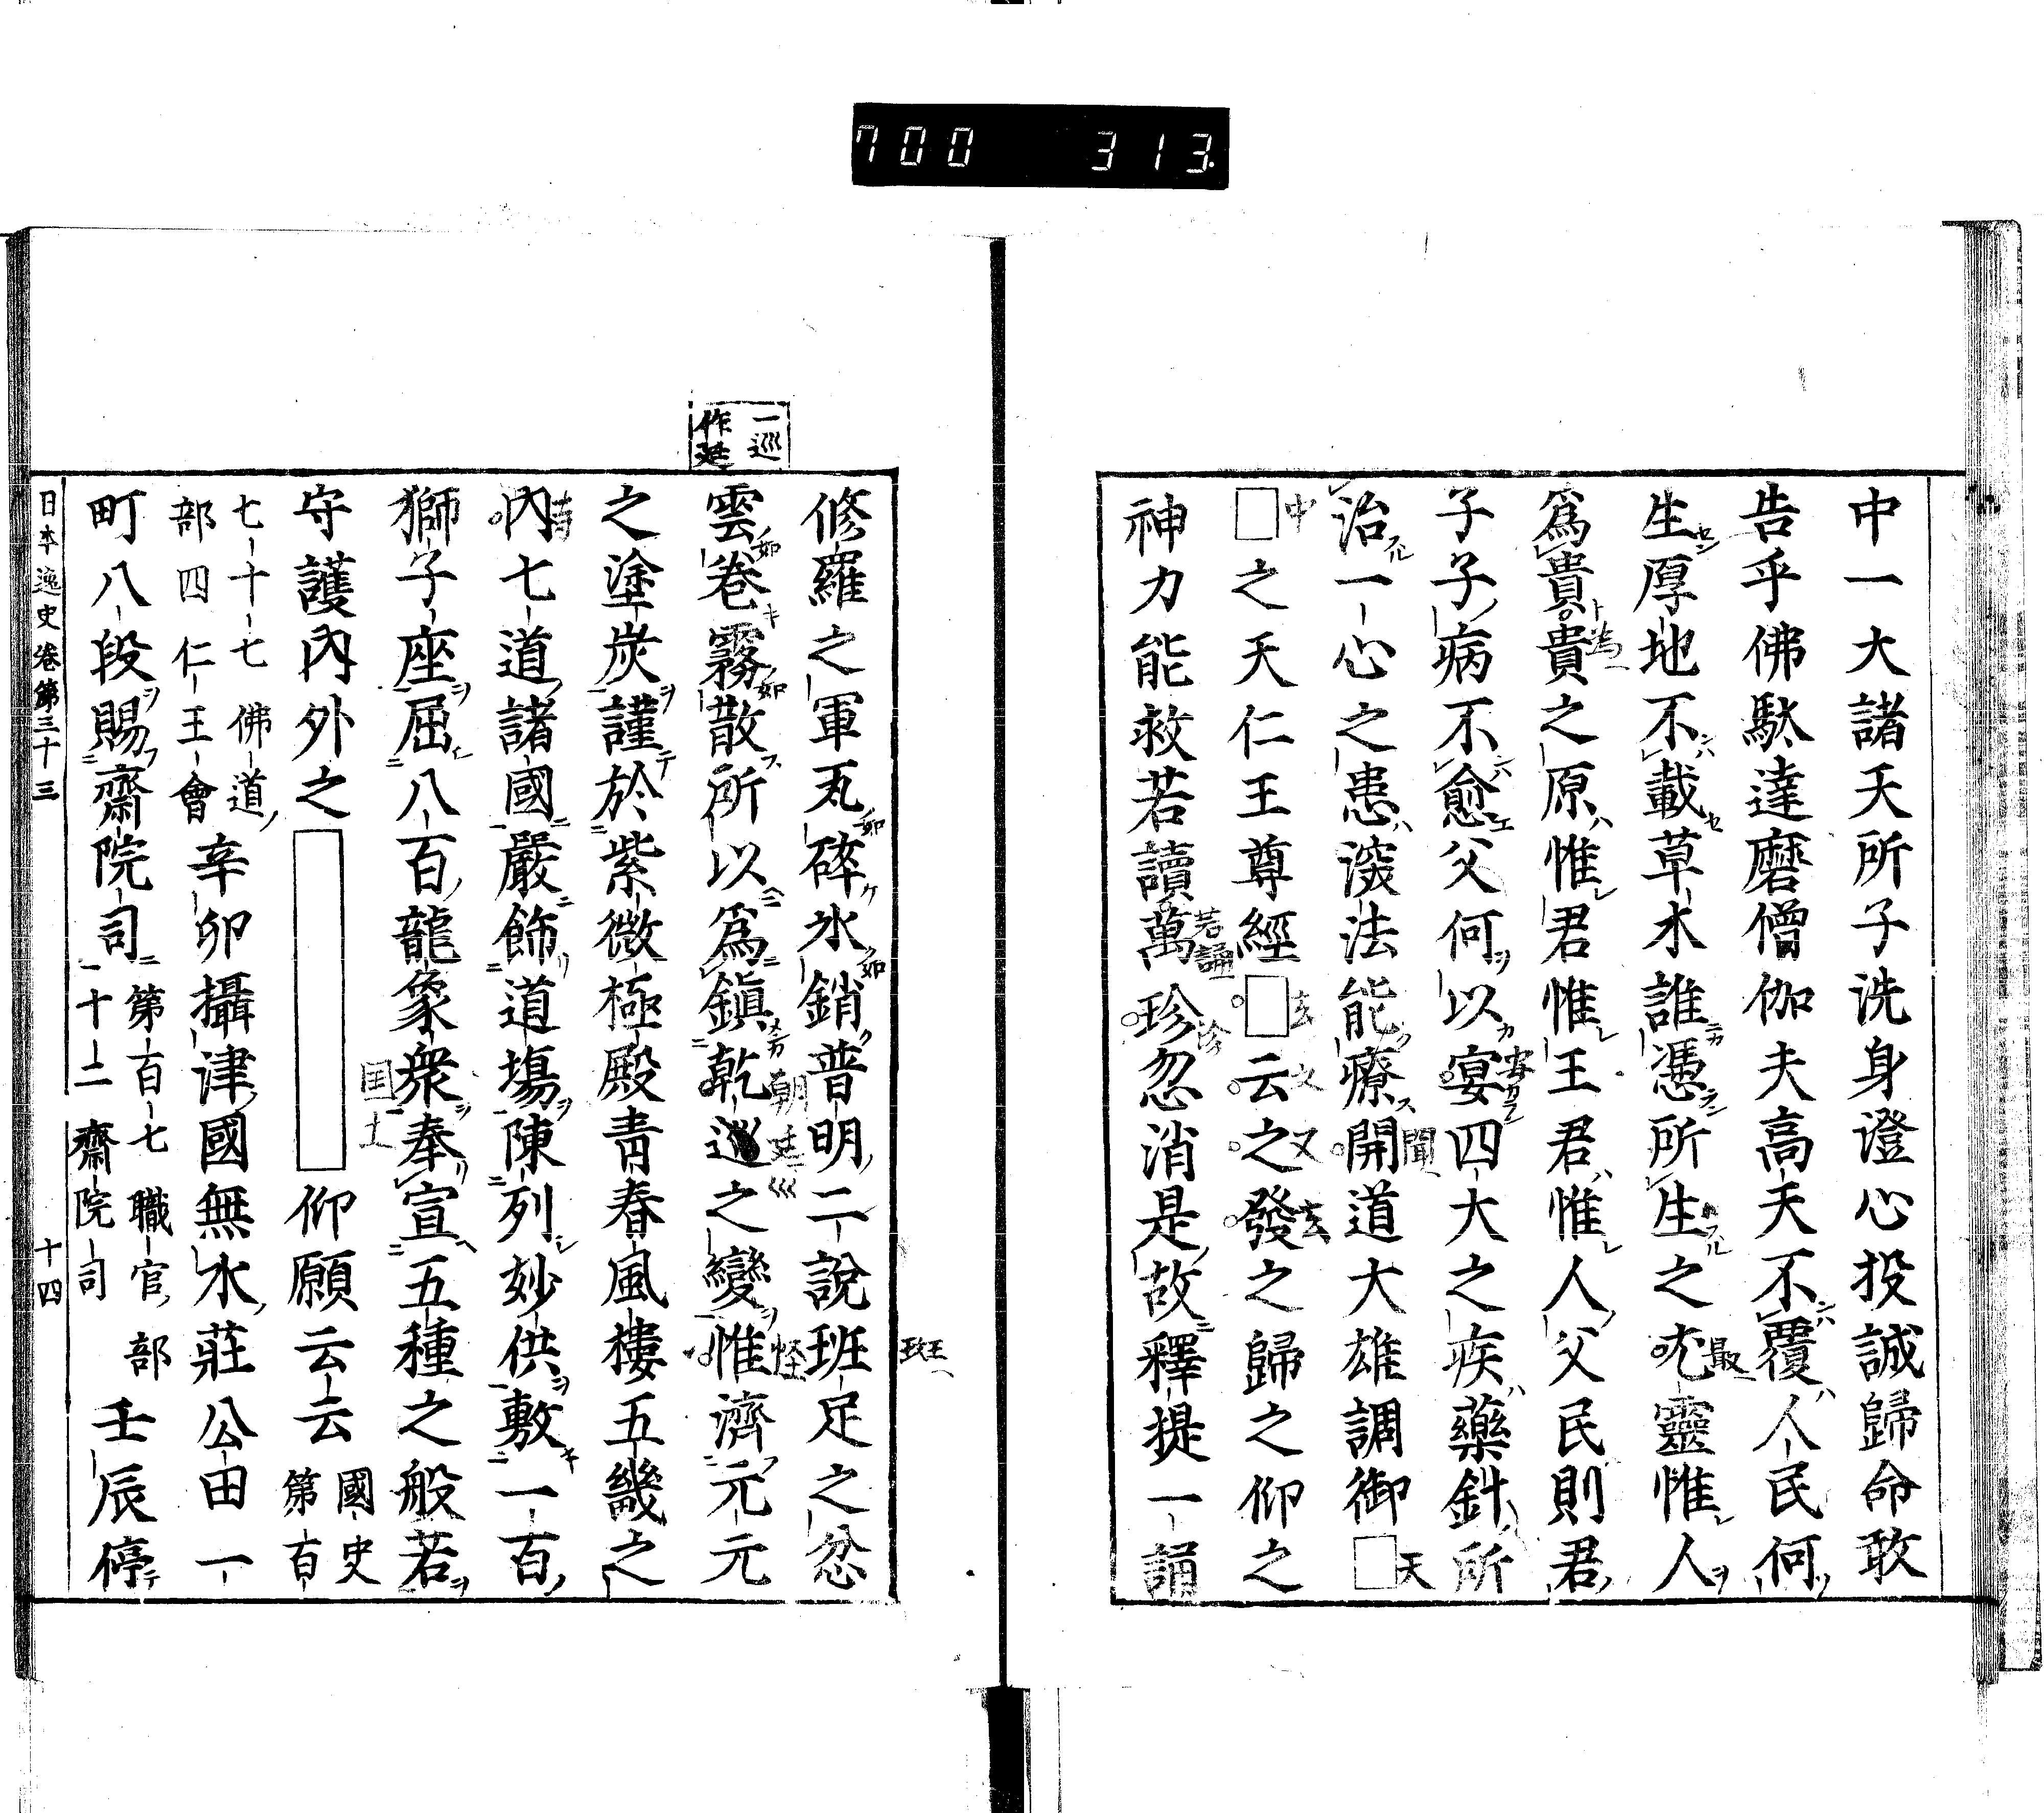 700 313
中一大諸天所子洗身澄心投誠歸命敢
告乎佛馱達磨僧伽夫高天不覆人民何
生厚地不載草木誰憑所生之尤靈惟人
爲貴貴之原惟君惟王君惟人父民則君
子子病不愈父何以宴四大之疾藥針所
治一心之患深法能療開道大雄調御□
□之天仁王尊經□云之發之歸之仰之
神力能救若讀萬珍忽消是故釋提一誦
一巡
作廷
修羅之軍瓦碎氷銷普明二說班足之忿
雲卷霧散所以爲鎭乾巡之變惟濟元元
之塗炭謹於紫微極殿青春風樓五畿之
內七道諸國嚴飾道場陳列妙供敷一百
獅子座屈八百龍象衆奉宣五種之般若
守護內外之 仰願云云 國史第百
七十七佛道部四仁王會 辛卯攝津國無水莊公田一
町八段賜齋院司 第百七職官部十二齋院司 壬辰停
日本逸史卷第三十三 十四